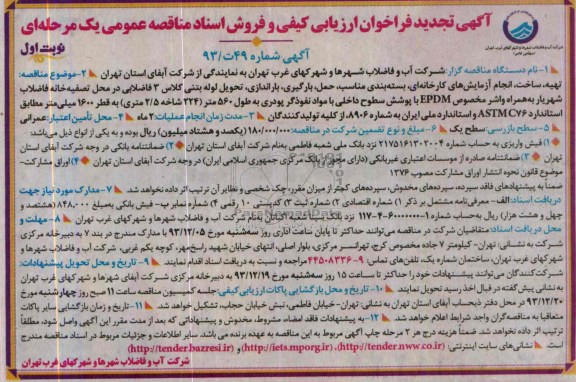 آگهی تجدید فراخوان ارزیابی کیفی و فروش اسناد مناقصه عمومی یک مرحله‌ای
نوبت اول
آگهی شماره ۴۹ت/۹۳
شرکت آب و فاضلاب شهرها و شهرکهای غرب تهران
(سهامی خاص)
۱-نام دستگاه مناقصه گزار: شرکت آب و فاضلاب شهرها و شهرکهای غرب تهران به نمایندگی از شرکت آبفای استان تهران ۲-موضوع مناقصه:
تهیه، ساخت، انجام آزمایش‌های کارخانه‌ای، بسته‌بندی مناسب، حمل، بارگیری، باراندازی، تحویل لوله بتنی کلاس ۳ فاضلابی در محل تصفیه‌خانه فاضلاب
شهریار به‌همراه واشر مخصوص EPDM با پوشش سطوح داخلی با مواد نفوذگر پودری به طول ۵۶۰ متر (۲۲۴ شاخه ۲/۵ متری) به قطر ۱۶۰۰ میلی‌متر مطابق
استاندارد ASTM C۷۶ و استاندارد ملی ایران به شماره ۸۹۰۶، از کلیه تولیدکنندگان ۳-مدت زمان انجام عملیات: ۲ ماه ۴-محل تأمین اعتبار: عمرانی
۵-سطح بازرسی: سطح یک ۶-مبلغ و نوع تضمین شرکت در مناقصه: ۱۸۰/۰۰۰/۰۰۰ (یکصد و هشتاد میلیون) ریال بوده و به یکی از انواع ذیل می‌باشد:
۱) فیش واریزی به حساب شماره ۲۱۷۵۱۶۱۳۰۲۰۰۴ نزد بانک ملی شعبه فاطمی بنام شرکت آبفای استان تهران ۲) ضمانتنامه بانکی در وجه شرکت آبفای استان
تهران ۳) ضمانتنامه صادره از موسسات اعتباری غیربانکی (دارای مجوز از بانک مرکزی جمهوری اسلامی ایران) در وجه شرکت آبفای استان تهران ۴) اوراق مشارکت-
موضوع قانون نحوه انتشار اوراق مشارکت مصوب ۱۳۷۶
ضمناً به پیشنهادهای فاقد سپرده، سپرده‌های مخدوش، سپرده‌های کمتر از میزان مقرر، چک شخصی و نظایر آن ترتیب اثر داده نخواهد شد. ۷-مدارک مورد نیاز جهت
دریافت اسناد: الف-معرفی‌نامه مشتمل بر ذکر ۱) شماره اقتصادی ۲) شماره ثبت ۳) کدپستی ۱۰ رقمی ۴) شماره نمابر ب- فیش بانکی به‌مبلغ ۸۴۸،۰۰۰ (هشتصد و
چهل و هشت هزار) ریال به‌حساب شماره ۱-۶۰۰۰۰۰۰-۴-۱۱۷ نزد بانک بنام شرکت آب و فاضلاب شهرها و شهرکهای غرب تهران ۸-مهلت و
محل دریافت اسناد: متقاضیان شرکت در مناقصه می‌توانند حداکثر تا پایان ساعت اداری روز سه‌شنبه مورخ ۹۳/۱۲/۰۵ با مدارک مندرج در بند ۷ به دبیرخانه مرکزی
شرکت به نشانی: تهران- کیلومتر ۷ جاده مخصوص کرج، تهرانسر مرکزی، بلوار اصلی، انتهای خیابان شهید راسخ‌مهر، کوچه یکم غربی، شرکت آب و فاضلاب شهرها و
شهرکهای غرب تهران، ساختمان شماره یک، تلفن‌های تماس: ۹-۴۴۵۰۸۳۳۶ مراجعه و نسبت به دریافت اسناد اقدام نمایند. ۹-تاریخ و محل تحویل پیشنهادات:
شرکت‌کنندگان می‌توانند پیشنهادات خود را حداکثر تا ساعت ۱۵ روز سه‌شنبه مورخ ۹۳/۱۲/۱۹ به دبیرخانه مرکزی شرکت آبفای شهرها و شهرکهای غرب تهران
به نشانی پیش‌گفته در قبال اخذ رسید تحویل نمایند. ۱۰-تاریخ و محل بازگشایی پاکات ارزیابی کیفی: جلسه کمیسیون مناقصه ساعت ۱۱ صبح روز چهارشنبه مورخ
۹۳/۱۲/۲۰ در محل دفتر ذیحساب آبفای استان تهران به نشانی: تهران- خیابان فاطمی نبش خیابان حجاب، تشکیل خواهد شد. ۱۱-تاریخ و زمان بازگشایی سایر پاکات
متعاقباً به مناقصه‌گران واجد شرایط اعلام خواهد شد. ۱۲-به پیشنهادات فاقد امضاء، مشروط، مخدوش و پیشنهاداتی که بعد از مدت مقرر این آگهی واصل شود، مطلقاً
ترتیب اثر داده نخواهد شد. ضمناً هزینه درج هر ۳ مرحله چاپ آگهی مربوط به این مناقصه به عهده برنده می باشد. سایر اطلاعات و جزئیات مربوط در اسناد مناقصه مندرج
است. نشانی‌های سایت اینترنتی: (http://tender.nww.co.ir)، (http://iets.mporg.ir) و (http://tender.bazresi.ir)
شرکت آب و فاضلاب شهرها و شهرکهای غرب تهران